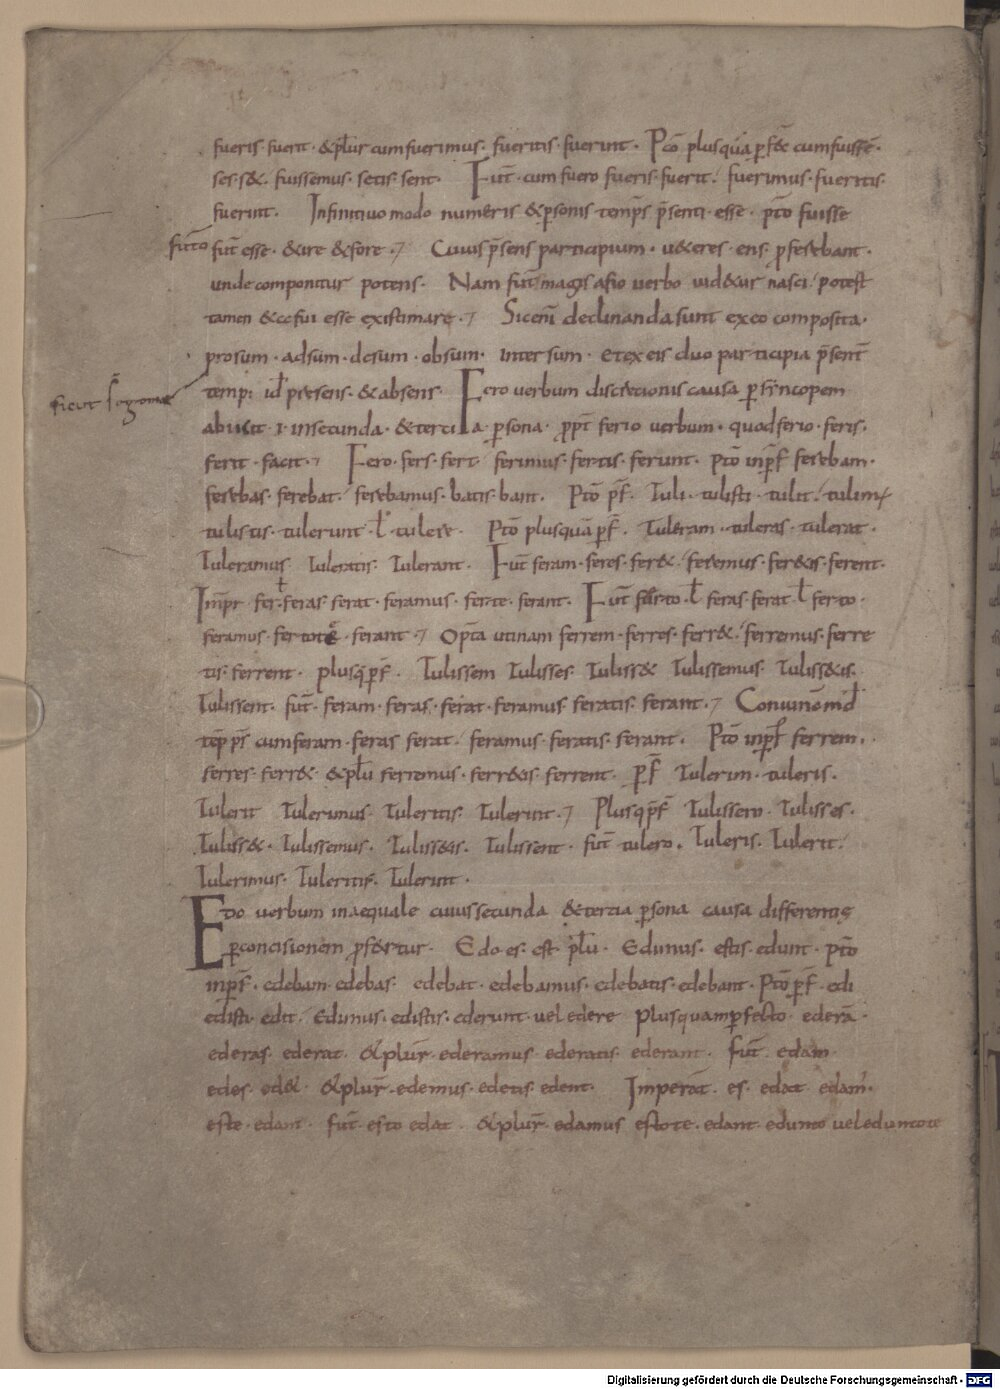 fueris fuerit· &plur̄ cum fuerimus· fueritis· fuerint· Pt̄o plusquā pf̄& cum fuissē·
ses· s&· fuissemus· setis· sent· Fut̄· cum fuero fueris· fuerit· fuerimus· fueritis·
fuerint· Infinitiuo modo numeris &personis temp̄s p̄senti· esse· pt̄o fuisse
fut̄o fut̄ esse· &ire &fore· Cuius p̄sens participium· u&eres· ens· proferebant·
unde componitur potens· Nam fut̄ magis a fio uerbo uid&ur nasci· potest
tamen &a fui esse existimare· Sic eni declinanda sunt ex eo composita·
prosum· adsum· desum· obsum· intersum· et ex eis duo participia p̄sent̄
sicut
temp· id presens· &absens· Fero uerbum discretionis causa per sincopem
abiicit ·i· in secunda· &tercia persona· ppt̄ ferio uerbum· quod ferio· feris·
ferit· facit· Fero· fers· fert· ferimus· fertis· ferunt· pt̄o inpf̄ ferebam·
ferebas· ferebat· ferebamus· batis· bant· Pt̄o pf̄· Tuli· tulisti· tulit· tulim
tulistis· tulerunt ł tulere· Pt̄o plusquā pf̄· Tuleram· tuleras· tulerat·
Tuleramus Tuleratis· Tulerant· Fut̄ feram· feres· fer&· feremus· fer&is· ferent·
Imp̄r fer· feras ferat· feramus· ferte· ferant· Fut̄ ferto· ł feras ferat ł ferto·
feramus· fertote· ferant· Opt̄a utinam ferrem· ferres· ferr&· ferremus· ferre
tis· ferrent· plusq̄pf̄· Tulissem Tulisses· Tuliss& Tulissemus· Tuliss&is·
Tulissent· fut̄· feram· feras· ferat· feramus feratis· ferant· Coniunc̄ mod
tēp p̄s cum feram· feras ferat· feramus· feratis· ferant· Pt̄o inpf̄ ferrem·
ferres· ferr& &plu ferremus· ferr&is· ferrent· Pf̄ Tulerim· tuleris·
Tulerit Tulerimus· Tuleritis· Tulerint· Plusqpf̄ Tulissem· Tulisses·
Tuliss&· Tulissemus· Tuliss&is· Tulissent· fut̄ tulero· Tuleris· Tulerit·
Tulerimus· Tuleritis· Tulerint·
Edo uerbum inaequale cuius secunda &tertia persona causa differentię
per concisionem prof&rtur· Edo· es· est· plu· Edimus· estis· edunt· pt̄o
inpf̄· edebam· edebas· edebat· edebamus· edebatis· edebant· Pt̄o pf̄· edi
edisti· edit· Edimus· edistis· ederunt· uel edere plusquamperfecto· ederā·
ederas ederat· &plur̄· ederamus ederatis ederant· fut̄ edam
edes ed& &plur̄· edemus· edetis edent· Imperat̄· es· edat edam·
este· edant· fut̄ esto edat· &plur̄· edamus estote· edant· edunto uel eduntote
Digitalisierung gefördert durch die Deutsche Forschungsgemeinschaft - DFG